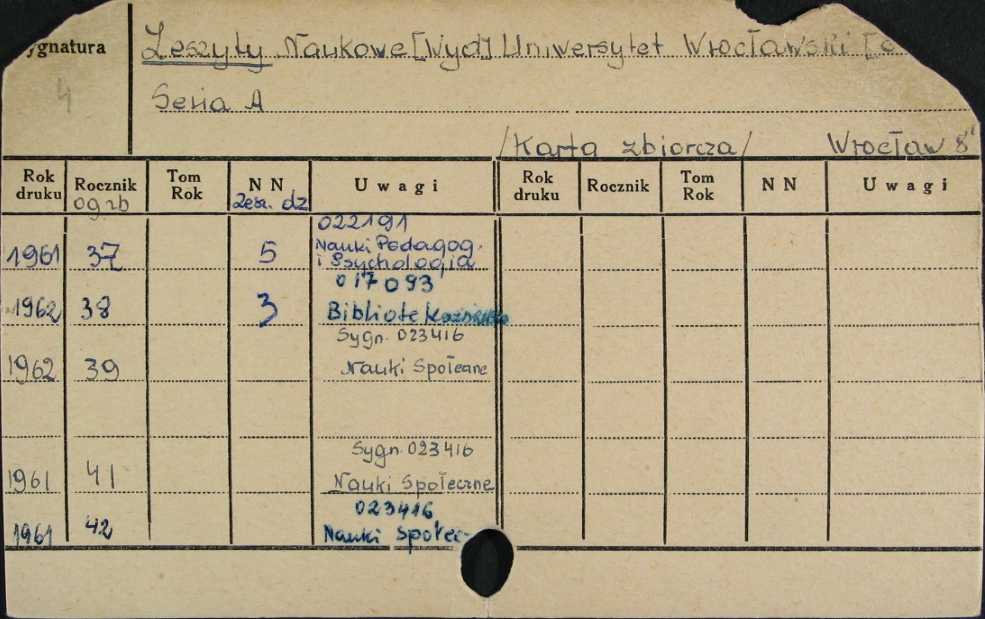 ygnatura Zeszyty Naukowe [Wyd] Uniwersytet Wrocławski
4 Seria A
/Karta zbiorcza/ Wrocław 8°
Rok druku Rocznik og.zb Tom Rok N N zesz. dz Uwagi Rok druku Rocznik Tom Rok N N Uwagi
022191
1961 37 5 Nauki Pedagog. i Psychologia
017093
1962 38 3 Bibliotekoznawstwo
Sygn. 023416
1962 39 Nauki Społeczne
Sygn. 023416
1961 41 Nauki Społeczne
023416
1961 42 Nauki Społec